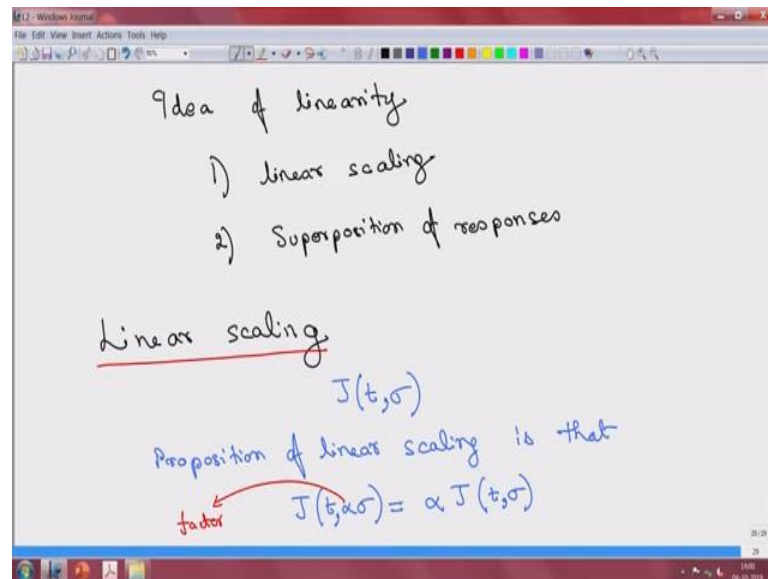 L2 - Windows Journal
File Edit View Insert Actions Tools Help
Idea of linearity
1) linear scaling
2) Superposition of responses
Linear scaling
J(t,σ)
Proposition of linear scaling is that
factor J(t,ασ) = α J(t,σ)
29/29
29
14:00
04-10-2019